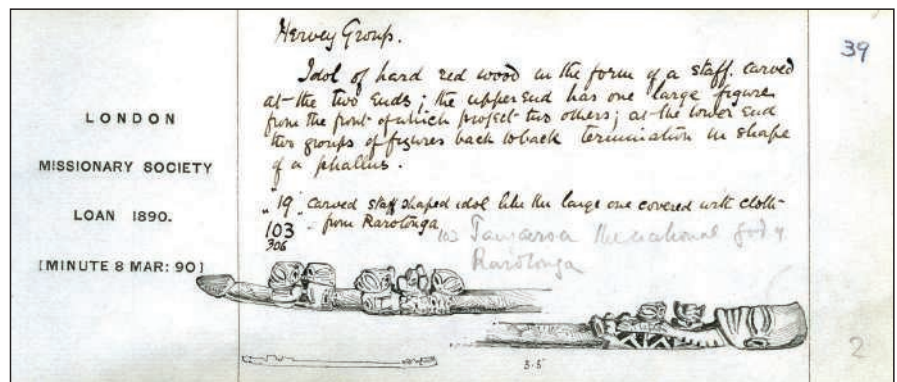 LONDON
MISSIONARY SOCIETY
LOAN 1890.
[MINUTE 8 MAR: 90]
Hervey Group.
Idol of hard red wood in the form of a staff. carved
at the two ends; the upper end has one large figure
from the front of which project two others; at the lower end
two groups of figures back to back termination in shape
of a phallus.
"19" carved staff shaped idol like the large one covered with cloth
103 from Rarotonga
306
103 the national god of
Rarotonga
39
2
3.5